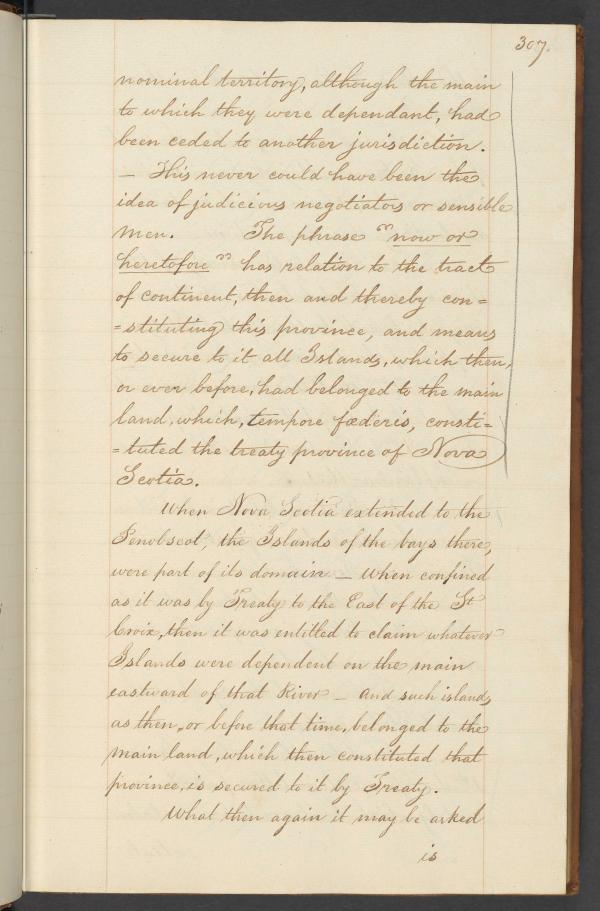 307.
nominal territory, although the main
to which they were dependant, had
been ceded to another jurisdiction.
— This never could have been the
idea of judicious negotiators or sensible
men. The phrase "now or
heretofore" has relation to the tract
of continent, then and thereby con=
=stituting this province, and means
to secure to it all Islands, which then,
or ever before, had belonged to the main
land, which, tempore fœderis, consti=
=tuted the treaty province of Nova
Scotia.
When Nova Scotia extended to the
Penobscot, the Islands of the bays there,
were part of its domain — When confined
as it was by Treaty to the East of the St
Croix, then it was entitled to claim whatever
Islands were dependent on the main
eastward of that River — and such islands
as then, or before that time, belonged to the
main land, which then constituted that
province, is secured to it by Treaty.
What then again it may be asked
is